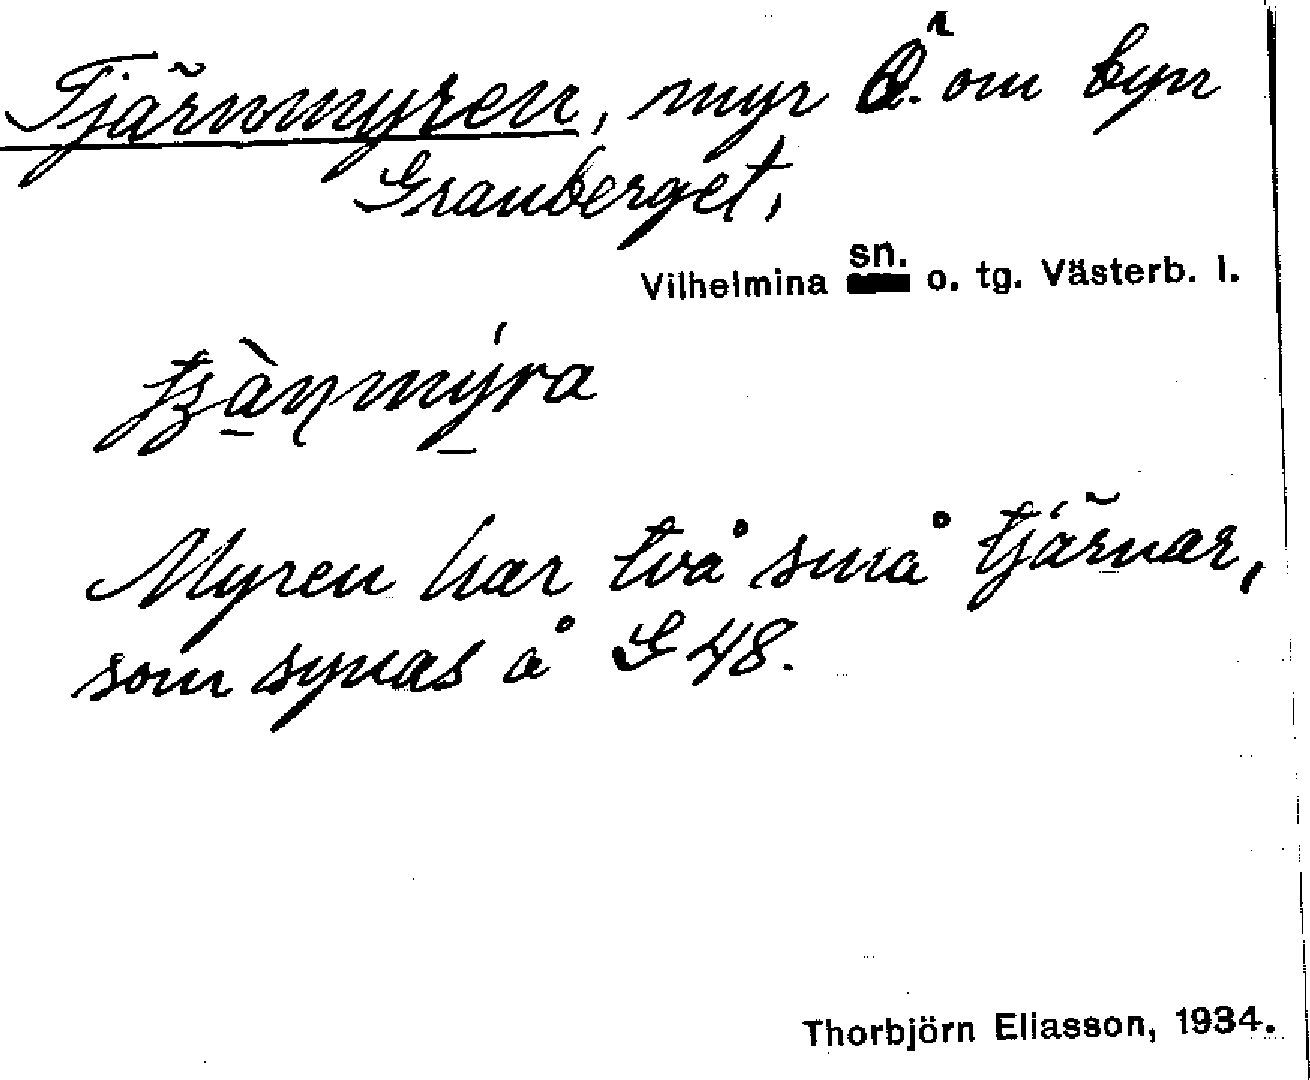 Tjärnmyren, myr Ö. om byn
Granberget,
Vilhelmina sn. o. tg. Västerb. l.
Myren har två små tjärnar,
som synas å G 48.
Thorbjörn Eliasson, 1934.